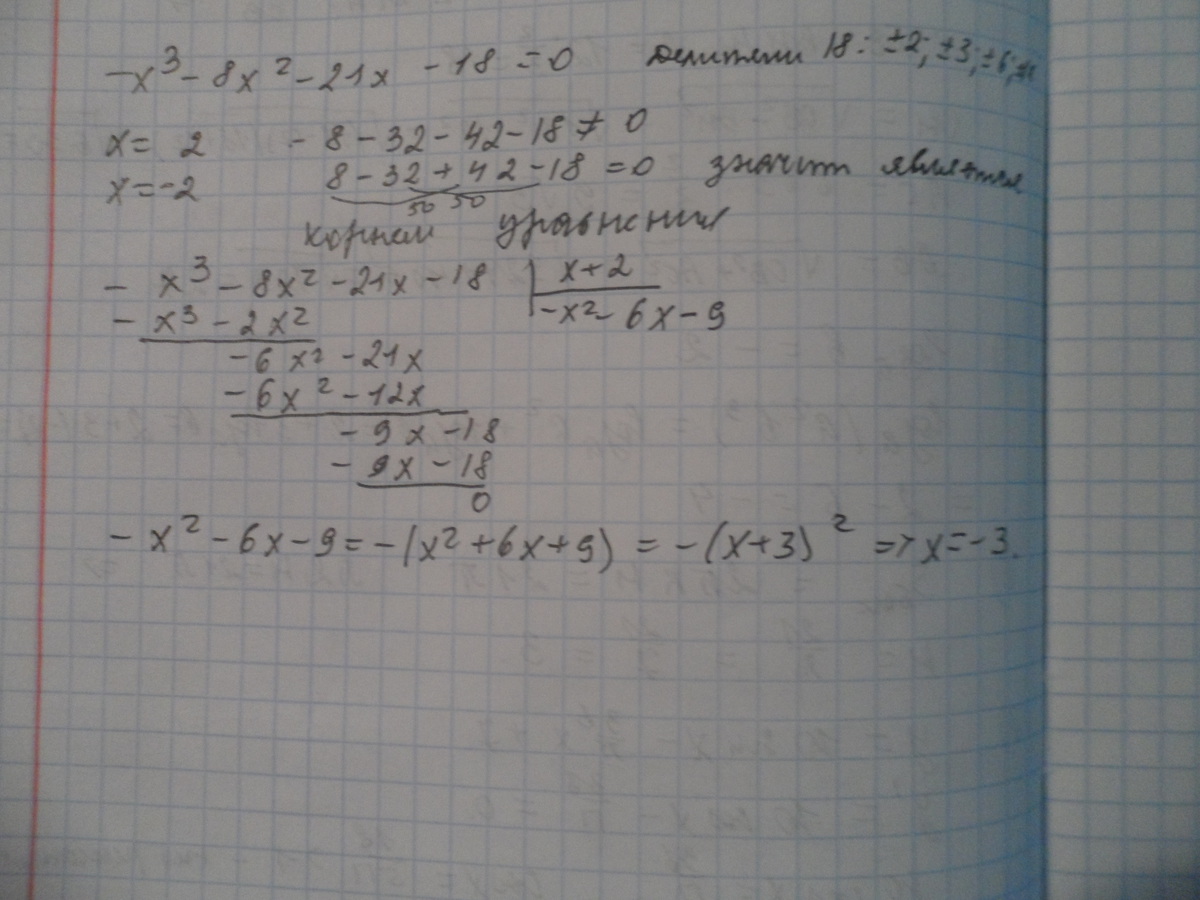 -x³ - 8x² - 21x - 18 = 0 делители 18: ±2; ±3; ±6;
x = 2 - 8 - 32 - 42 - 18 ≠ 0
x = -2 8 - 32 + 42 - 18 = 0 значит является
50 50
корнем уравнения
- x³ - 8x² - 21x - 18 | x + 2
- x³ - 2x² -x² - 6x - 9
-6x² - 21x
-6x² - 12x
-9x - 18
-9x - 18
0
-x² - 6x - 9 = -(x² + 6x + 9) = -(x+3)² => x = -3.